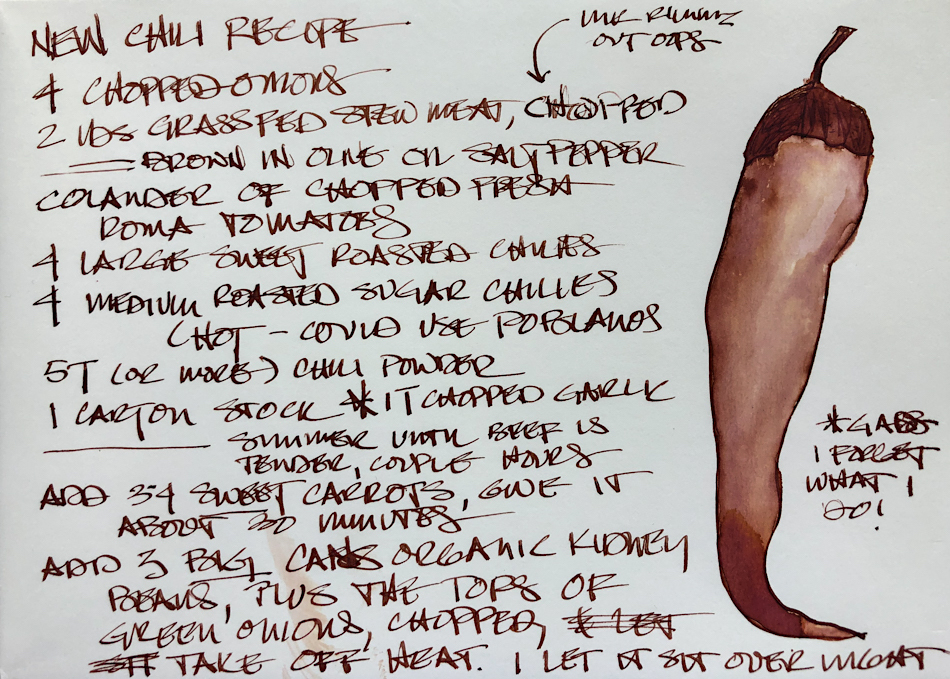 NEW CHILI RECIPE
INK RUNNING
OUT OOPS
4 CHOPPED ONIONS
2 LBS GRASSFED STEW MEAT, CHOPPED
BROWN IN OLIVE OIL SALT PEPPER
COLANDER OF CHOPPED FRESH
ROMA TOMATOES
4 LARGE SWEET ROASTED CHILIES
4 MEDIUM ROASTED SUGAR CHILIES
(HOT - COULD USE POBLANOS
5T (OR MORE) CHILI POWDER
1 CARTON STOCK * 1T CHOPPED GARLIC
SIMMER UNTIL BEEF IS
TENDER, COUPLE HOURS
ADD 3-4 SWEET CARROTS, GIVE IT
ABOUT 30 MINUTES
ADD 3 BIG CANS ORGANIC KIDNEY
BEANS, PLUS THE TOPS OF
GREEN ONIONS, CHOPPED,
TAKE OFF HEAT. I LET IT SIT OVER NIGHT
* GADS
I FORGET
WHAT I
DO!